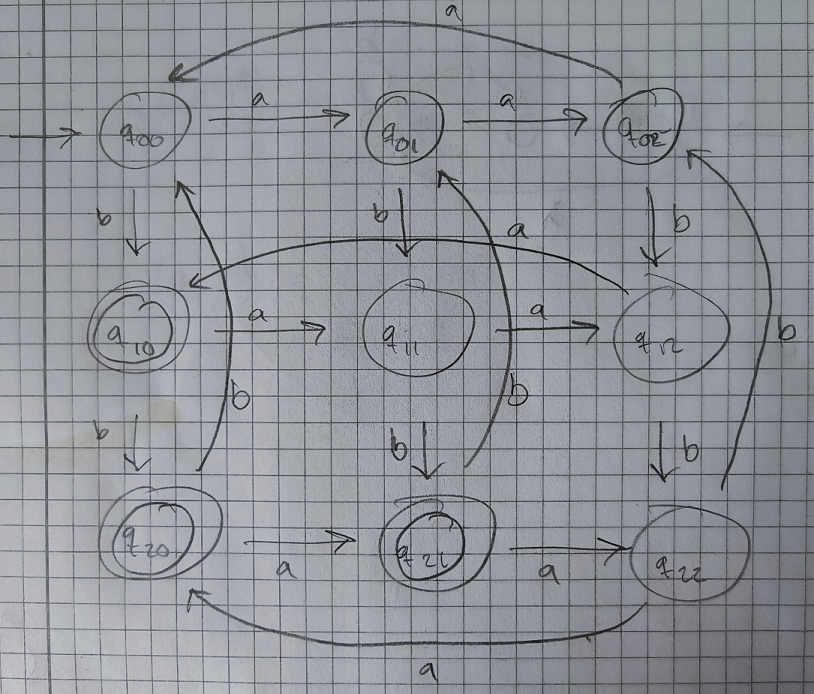 a
q00 a q01 a q02
b b b
a
q10 a q11 a q12
b b b
b b b
q20 a q21 a q22
a